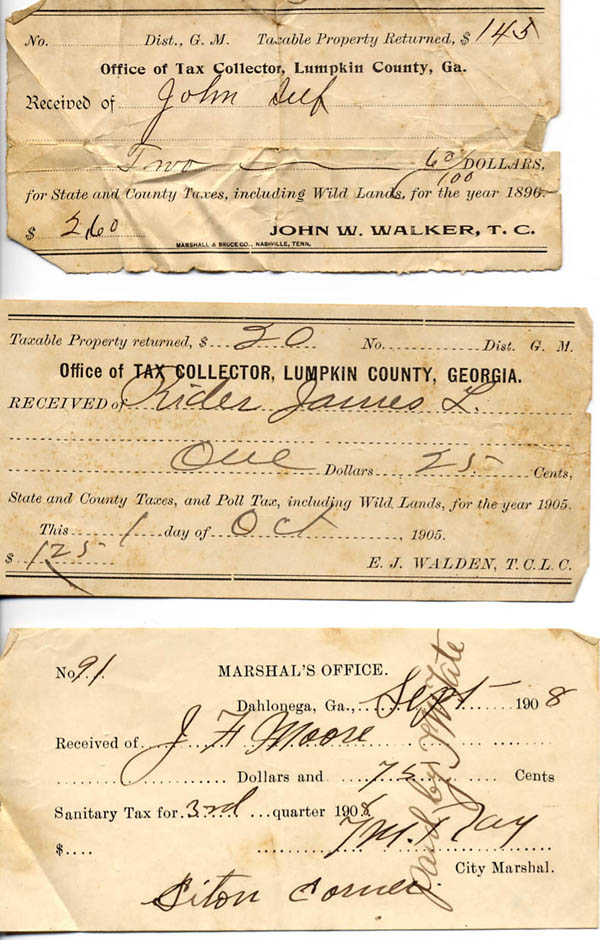 No. Dist., G. M. Taxable Property Returned, $ 145
Office of Tax Collector, Lumpkin County, Ga.
Received of John
Two 60/100 DOLLARS,
for State and County Taxes, including Wild Lands, for the year 1896.
$ 2.60 JOHN W. WALKER, T. C.
MARSHALL & BRUCE CO., NASHVILLE, TENN.
Taxable Property returned, $ 20 No. Dist. G. M.
Office of TAX COLLECTOR, LUMPKIN COUNTY, GEORGIA.
RECEIVED of Rider James L.
One Dollars 25 Cents,
State and County Taxes, and Poll Tax, including Wild Lands, for the year 1905.
This 1 day of Oct, 1905.
$ 125 E. J. WALDEN, T. C. L. C.
No 91. MARSHAL'S OFFICE.
Dahlonega, Ga., Sept 1908
Received of J F Moore
Dollars and 75 Cents
Sanitary Tax for 3rd quarter 1908
Ray
$
City Marshal.
Corner
Paid by